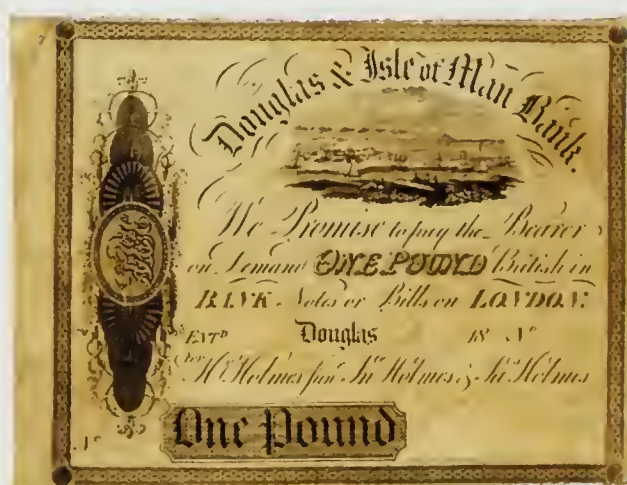 Douglas & Isle of Man Bank.
We Promise to pay the Bearer
on Demand ONE POUND British in
BANK Notes or Bills on LONDON.
ENTD Douglas 18 No
For
Hy. Holmes junr. Jno. Holmes & Jas. Holmes
No
One Pound